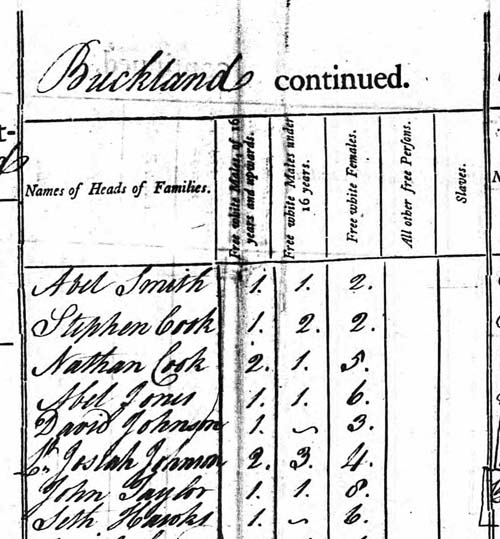 Buckland continued.
Names of Heads of Families. Free white Males, of 16 years and upwards. Free white Males under 16 years. Free white Females. All other free Persons. Slaves.
Abel Smith 1. 1. 2.
Stephen Cook 1. 2. 2.
Nathan Cook 2. 1. 5.
Abel Jones 1. 1. 6.
David Johnson 1. ~ 3.
Josiah Johnson 2. 3. 4.
John Taylor 1. 1. 8.
Seth Hawks 1. ~ 6.